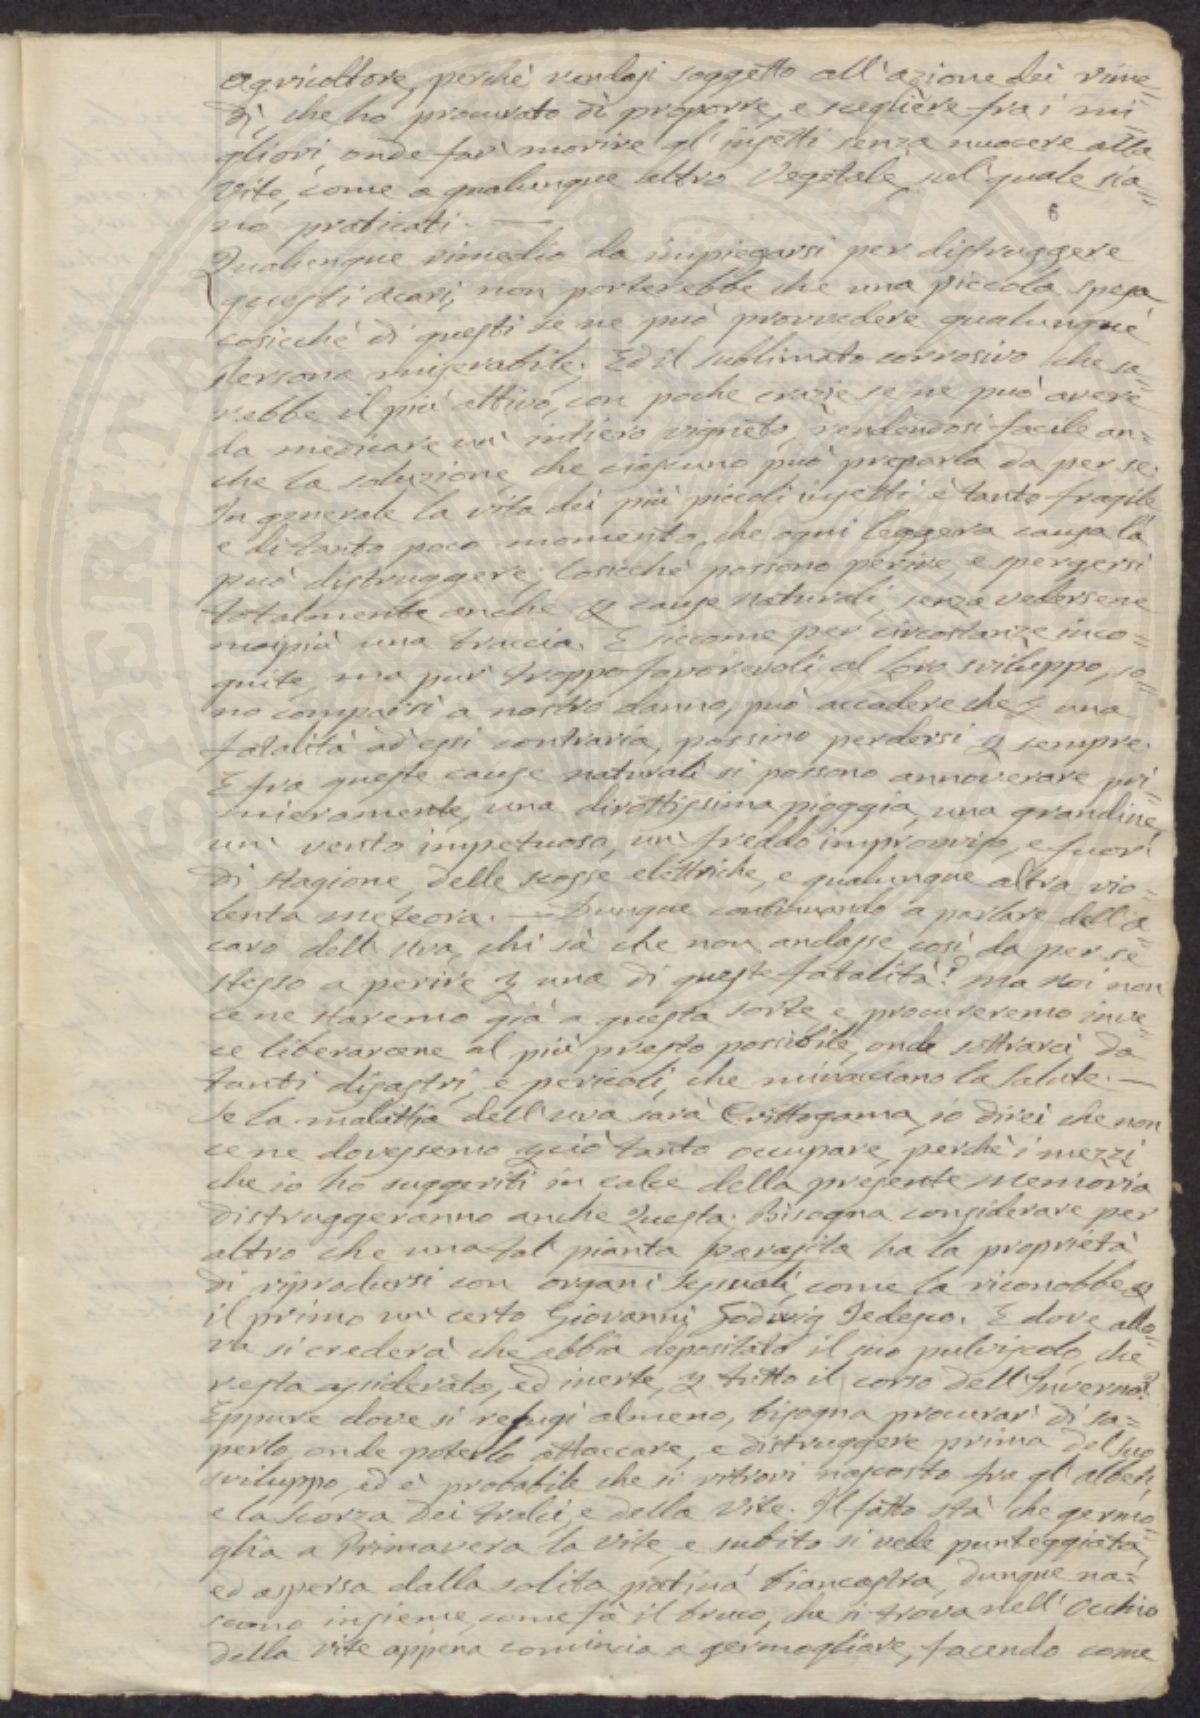 agricoltore, perchè rendasi soggetto all'azione dei rime=
dj, che ho procurato di proporre, e scegliere fra i mi=
gliori, onde far morire gl'insetti senza nuocere alla
Vite, come a qualunque altro Vegetale, sul quale sia=
no praticati. —
6
Qualunque rimedio da impiegarsi per distruggere
questi acari, non porterebbe che una piccola spesa
cosicchè di questi se ne può provvedere qualunque
persona miserabile; Ed il sublimato corrosivo che sa=
rebbe il più attivo, con poche crazie se ne può avere
da medicare un' intiero vigneto, rendendosi facile an=
che la soluzione, che ciascuno può preparla da per se.
In generale la vita dei più piccoli insetti è tanto fragile
e di tanto poco momento, che ogni leggera causa la
può distruggere; Cosicchè possono perire, e spergersi
totalmente anche p cause naturali, senza vedersene
maipiù una traccia. E siccome per circostanze inco=
gnite, ma pur troppo favorevoli al loro sviluppo, so=
no comparsi a nostro danno, può accadere che p una
fatalità ad essi contraria, possino perdersi p sempre.
E fra queste cause naturali si possono annoverare pri=
mieramente, una dirottissima pioggia, una grandine,
un' vento impetuoso, un' freddo improvviso, e fuori
di stagione, delle scosse elettriche, e qualunque altra vio=
lenta meteora. — Dunque continuando a parlare dell'a=
caro dell'Uva, chi sà che non andasse così da per se
stesso a perire p una di queste fatalità? Ma noi non
ce ne staremo già a questa sorte, e procureremo inve=
ce liberarcene al più presto possibile, onde sottrarci da
tanti disastri, e pericoli, che minacciano la Salute. —
Se la malattia dell'uva sarà Crittogama, io direi che non
ce ne dovessemo pciò tanto occupare, perchè i mezzi
che io ho suggeriti in calce della presente Memoria
distruggeranno anche Questa. Bisogna considerare per
altro che una tal pianta parasita ha la proprietà
di riprodursi con organi sessuali, come la riconobbe p
il primo un certo Giovanni Hodwig Tedesco. E dove allo=
ra si crederà che abbia depositato il suo pulviscolo, che
resta assiderato, ed inerte, p tutto il corso dell'Inverno?
Eppure dove si refugi almeno, bisogna procurar' di sa=
perlo, onde poterlo attaccare, e distruggere prima del Suo
sviluppo, ed è probabile che si ritrovi nascosto fra gl'alberi,
e la Scorza dei tralci, e della Vite. Il fatto stà che germo=
glia a Primavera la Vite, e subito si vede punteggiata,
ed aspersa dalla solita patina biancastra, dunque na=
scono insieme, come fà il bruco, che si trova nell'Occhio
della Vite appena comincia a germogliare, facendo come